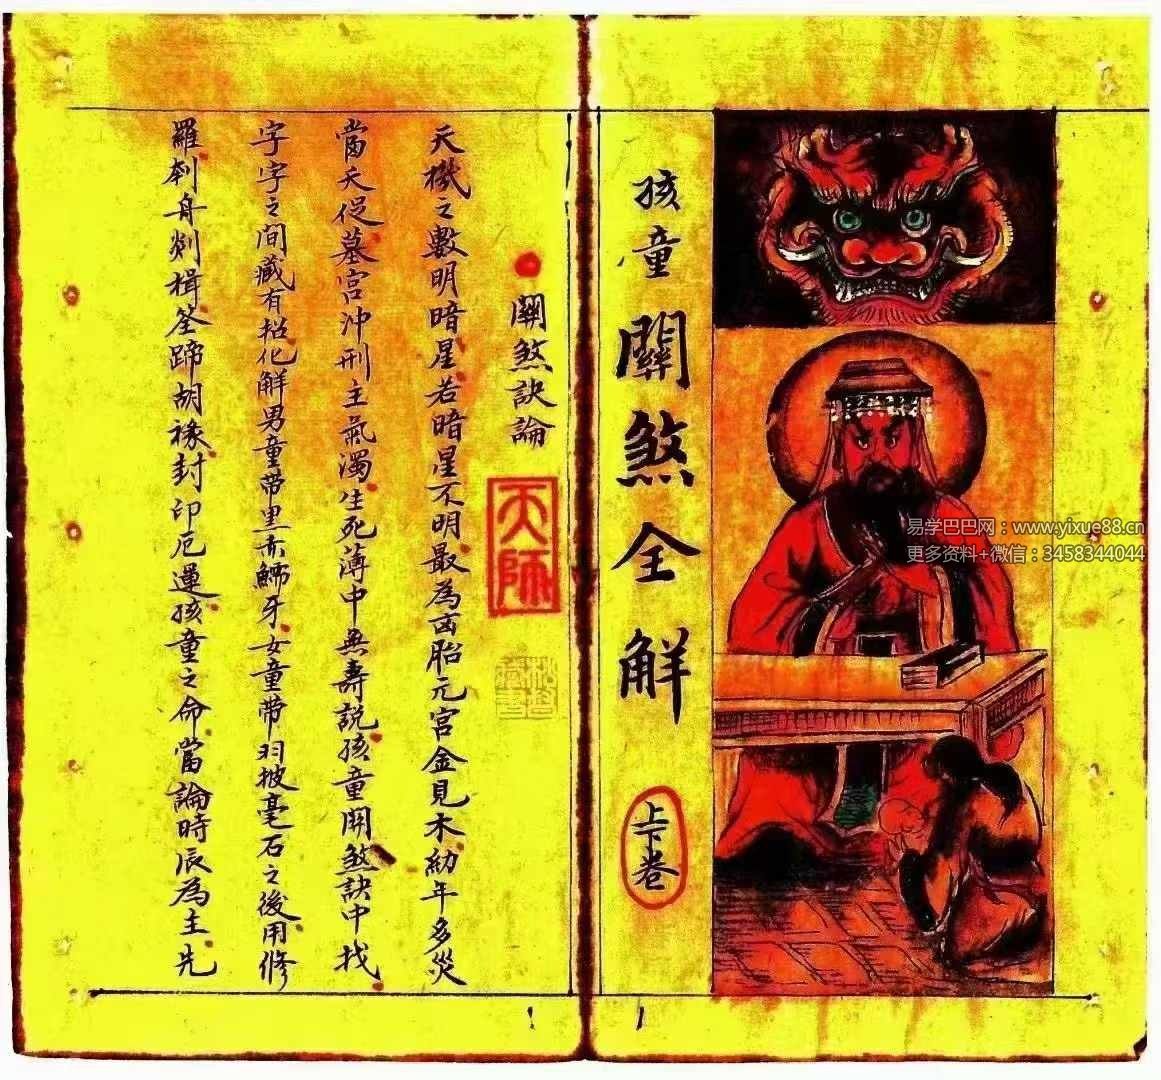 孩童關煞全解
上下卷
易学巴巴网:www.yixue88.cn
更多资料+微信:3458344044
關煞訣論
天師
天機之數明暗星若暗星不明最為凶胎元宮金見木幼年多災
當天促墓宮冲刑主氣濁生死薄中無壽說孩童關煞訣中找
字字之间藏有招化解男童带黑赤鱬牙女童带羽披毫石之後用修
羅刹舟剡楫筌蹄胡椽封印厄運孩童之命當論時辰為主先
1
1